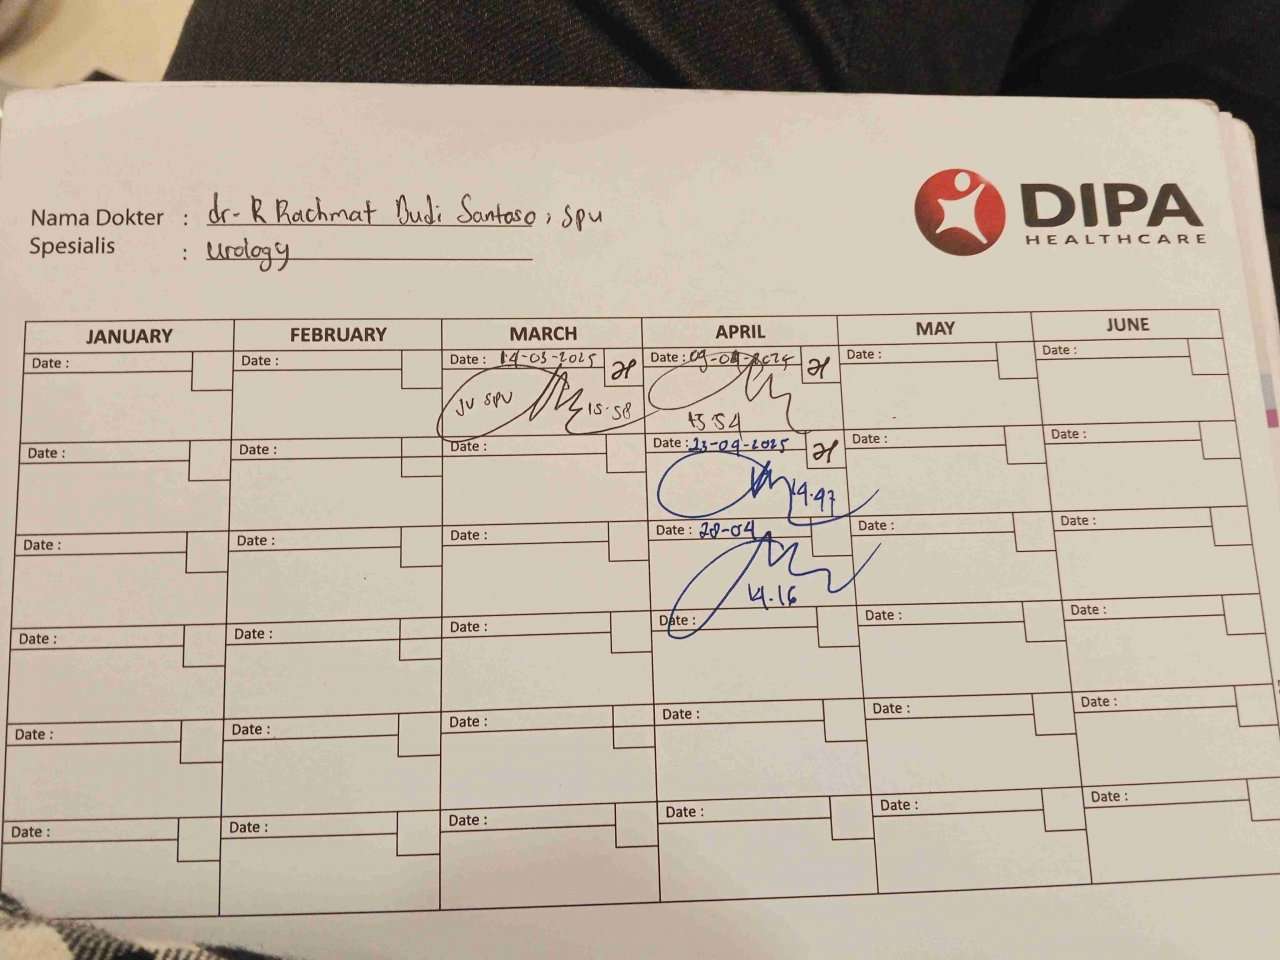 DIPA
HEALTHCARE
Nama Dokter : dr. R Rachmat Budi Santoso, SpU
Spesialis : Urology
JANUARY FEBRUARY MARCH APRIL MAY JUNE
Date : Date : Date : 14-03-2025 Date : 09-04-2025 Date : Date :
JV SPU 15.58 15.54
Date : Date : Date : Date : 23-04-2025 Date : Date :
14.47
Date : Date : Date : Date : 28-04 Date : Date :
14.16
Date : Date : Date : Date : Date : Date :
Date : Date : Date : Date : Date : Date :
Date : Date : Date : Date : Date : Date :